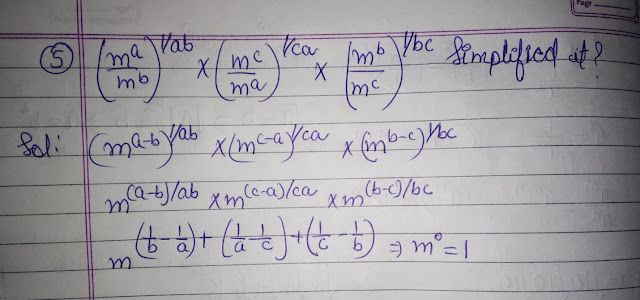 Page
⑤ (mᵃ/mᵇ)^1/ab × (mᶜ/mᵃ)^1/ca × (mᵇ/mᶜ)^1/bc Simplified it?
Sol: (m^a-b)^1/ab × (m^c-a)^1/ca × (m^b-c)^1/bc
m^(a-b)/ab × m^(c-a)/ca × m^(b-c)/bc
m^(1/b - 1/a) + (1/a - 1/c) + (1/c - 1/b) ⇒ m⁰ = 1